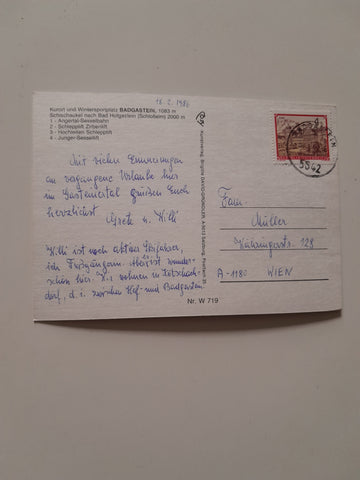 18.2.1986
Kurort und Wintersportplatz BADGASTEIN, 1083 m
Schischaukel nach Bad Hofgastein (Schloßalm) 2000 m
1 - Angertal-Sesselbahn
2 - Schlepplift Zirbenlift
3 - Hochleiten Schlepplift
4 - Junger-Sessellift
Mit vielen Erinnerungen
an vergangene Urlaube hier
im Gasteinertal grüßen Euch
herzlichst Grete u. Willi
Willi ist noch aktiver Skifahrer,
ich Fußgängerin. Aber ist wunder-
schön hier. Wir wohnen in Kötschach-
dorf, d. i. zwischen Hof- und Badgastein.
Nr. W 719
Kunstverlag Brigitte A-5013 Salzburg, Postfach 35
5542
Fam.
Müller
128
A-1180 WIEN